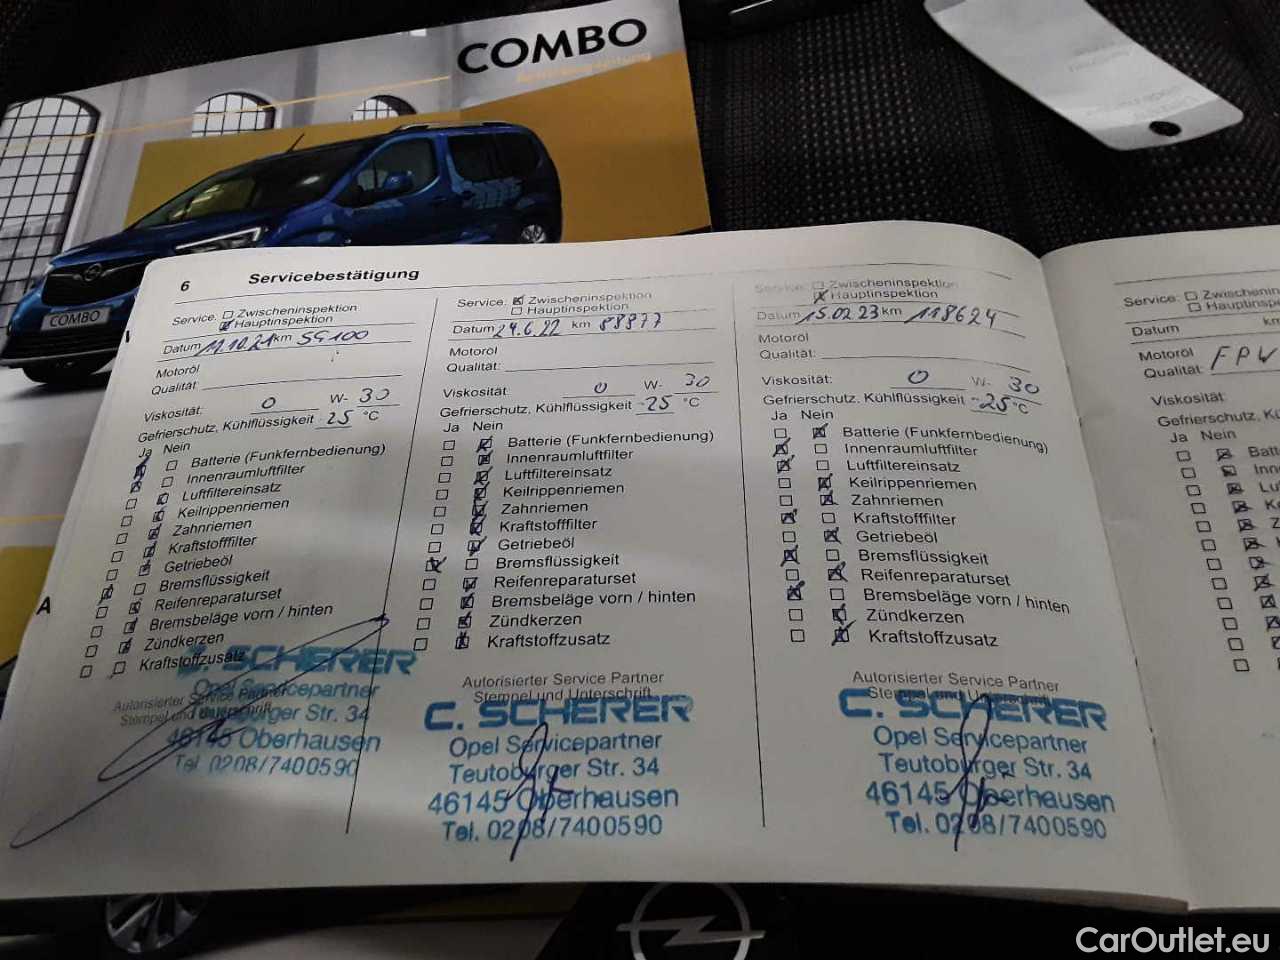 COMBO
Betriebsanleitung
COMBO
6 Servicebestätigung
Service: Zwischeninspektion
Hauptinspektion
Datum 11.10.21 km 59100
Motoröl
Qualität:
Viskosität: 0 W- 30
Gefrierschutz, Kühlflüssigkeit -25 °C
Ja Nein
Batterie (Funkfernbedienung)
Innenraumluftfilter
Luftfiltereinsatz
Keilrippenriemen
Zahnriemen
Kraftstofffilter
Getriebeöl
Bremsflüssigkeit
Reifenreparaturset
Bremsbeläge vorn / hinten
Zündkerzen
Kraftstoffzusatz
Autorisierter Service Partner
Stempel und Unterschrift
C. SCHERER
Opel Servicepartner
Teutoburger Str. 34
46145 Oberhausen
Tel. 0208/7400590
Service: Zwischeninspektion
Hauptinspektion
Datum 24.6.22 km 88977
Motoröl
Qualität:
Viskosität: 0 W- 30
Gefrierschutz, Kühlflüssigkeit -25 °C
Ja Nein
Batterie (Funkfernbedienung)
Innenraumluftfilter
Luftfiltereinsatz
Keilrippenriemen
Zahnriemen
Kraftstofffilter
Getriebeöl
Bremsflüssigkeit
Reifenreparaturset
Bremsbeläge vorn / hinten
Zündkerzen
Kraftstoffzusatz
Autorisierter Service Partner
Stempel und Unterschrift
C. SCHERER
Opel Servicepartner
Teutoburger Str. 34
46145 Oberhausen
Tel. 0208/7400590
Service: Zwischeninspektion
Hauptinspektion
Datum 15.02.23 km 118624
Motoröl
Qualität:
Viskosität: 0 W- 30
Gefrierschutz, Kühlflüssigkeit -25 °C
Ja Nein
Batterie (Funkfernbedienung)
Innenraumluftfilter
Luftfiltereinsatz
Keilrippenriemen
Zahnriemen
Kraftstofffilter
Getriebeöl
Bremsflüssigkeit
Reifenreparaturset
Bremsbeläge vorn / hinten
Zündkerzen
Kraftstoffzusatz
Autorisierter Service Partner
Stempel und Unterschrift
C. SCHERER
Opel Servicepartner
Teutoburger Str. 34
46145 Oberhausen
Tel. 0208/7400590
Service: Zwischeninspektion
Hauptinspektion
Datum km
Motoröl
Qualität:
Viskosität:
Gefrierschutz, Kü
Ja Nein
Batt
Inne
Luf
Ke
Z
A
CarOutlet.eu